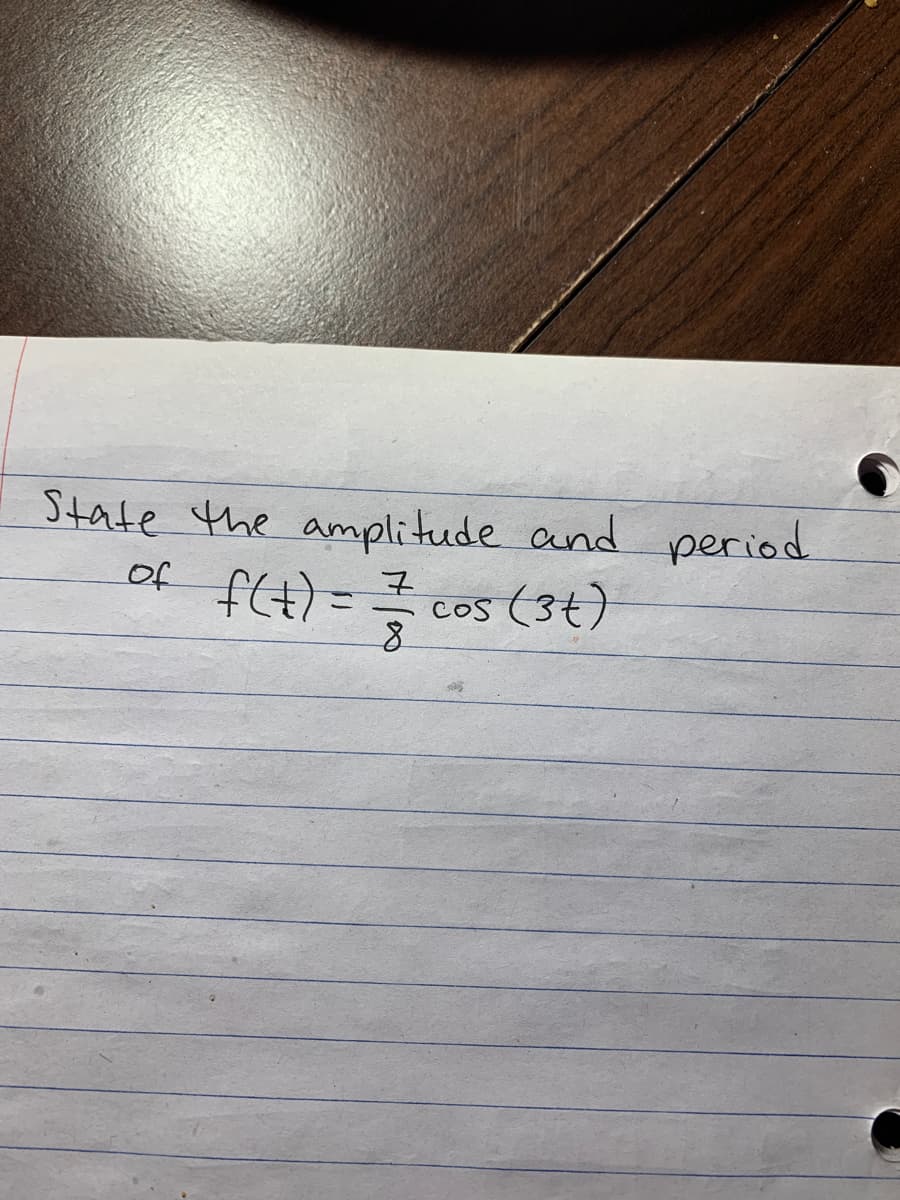 State the amplitude and period
of f(t) = 7/8 cos (3t)